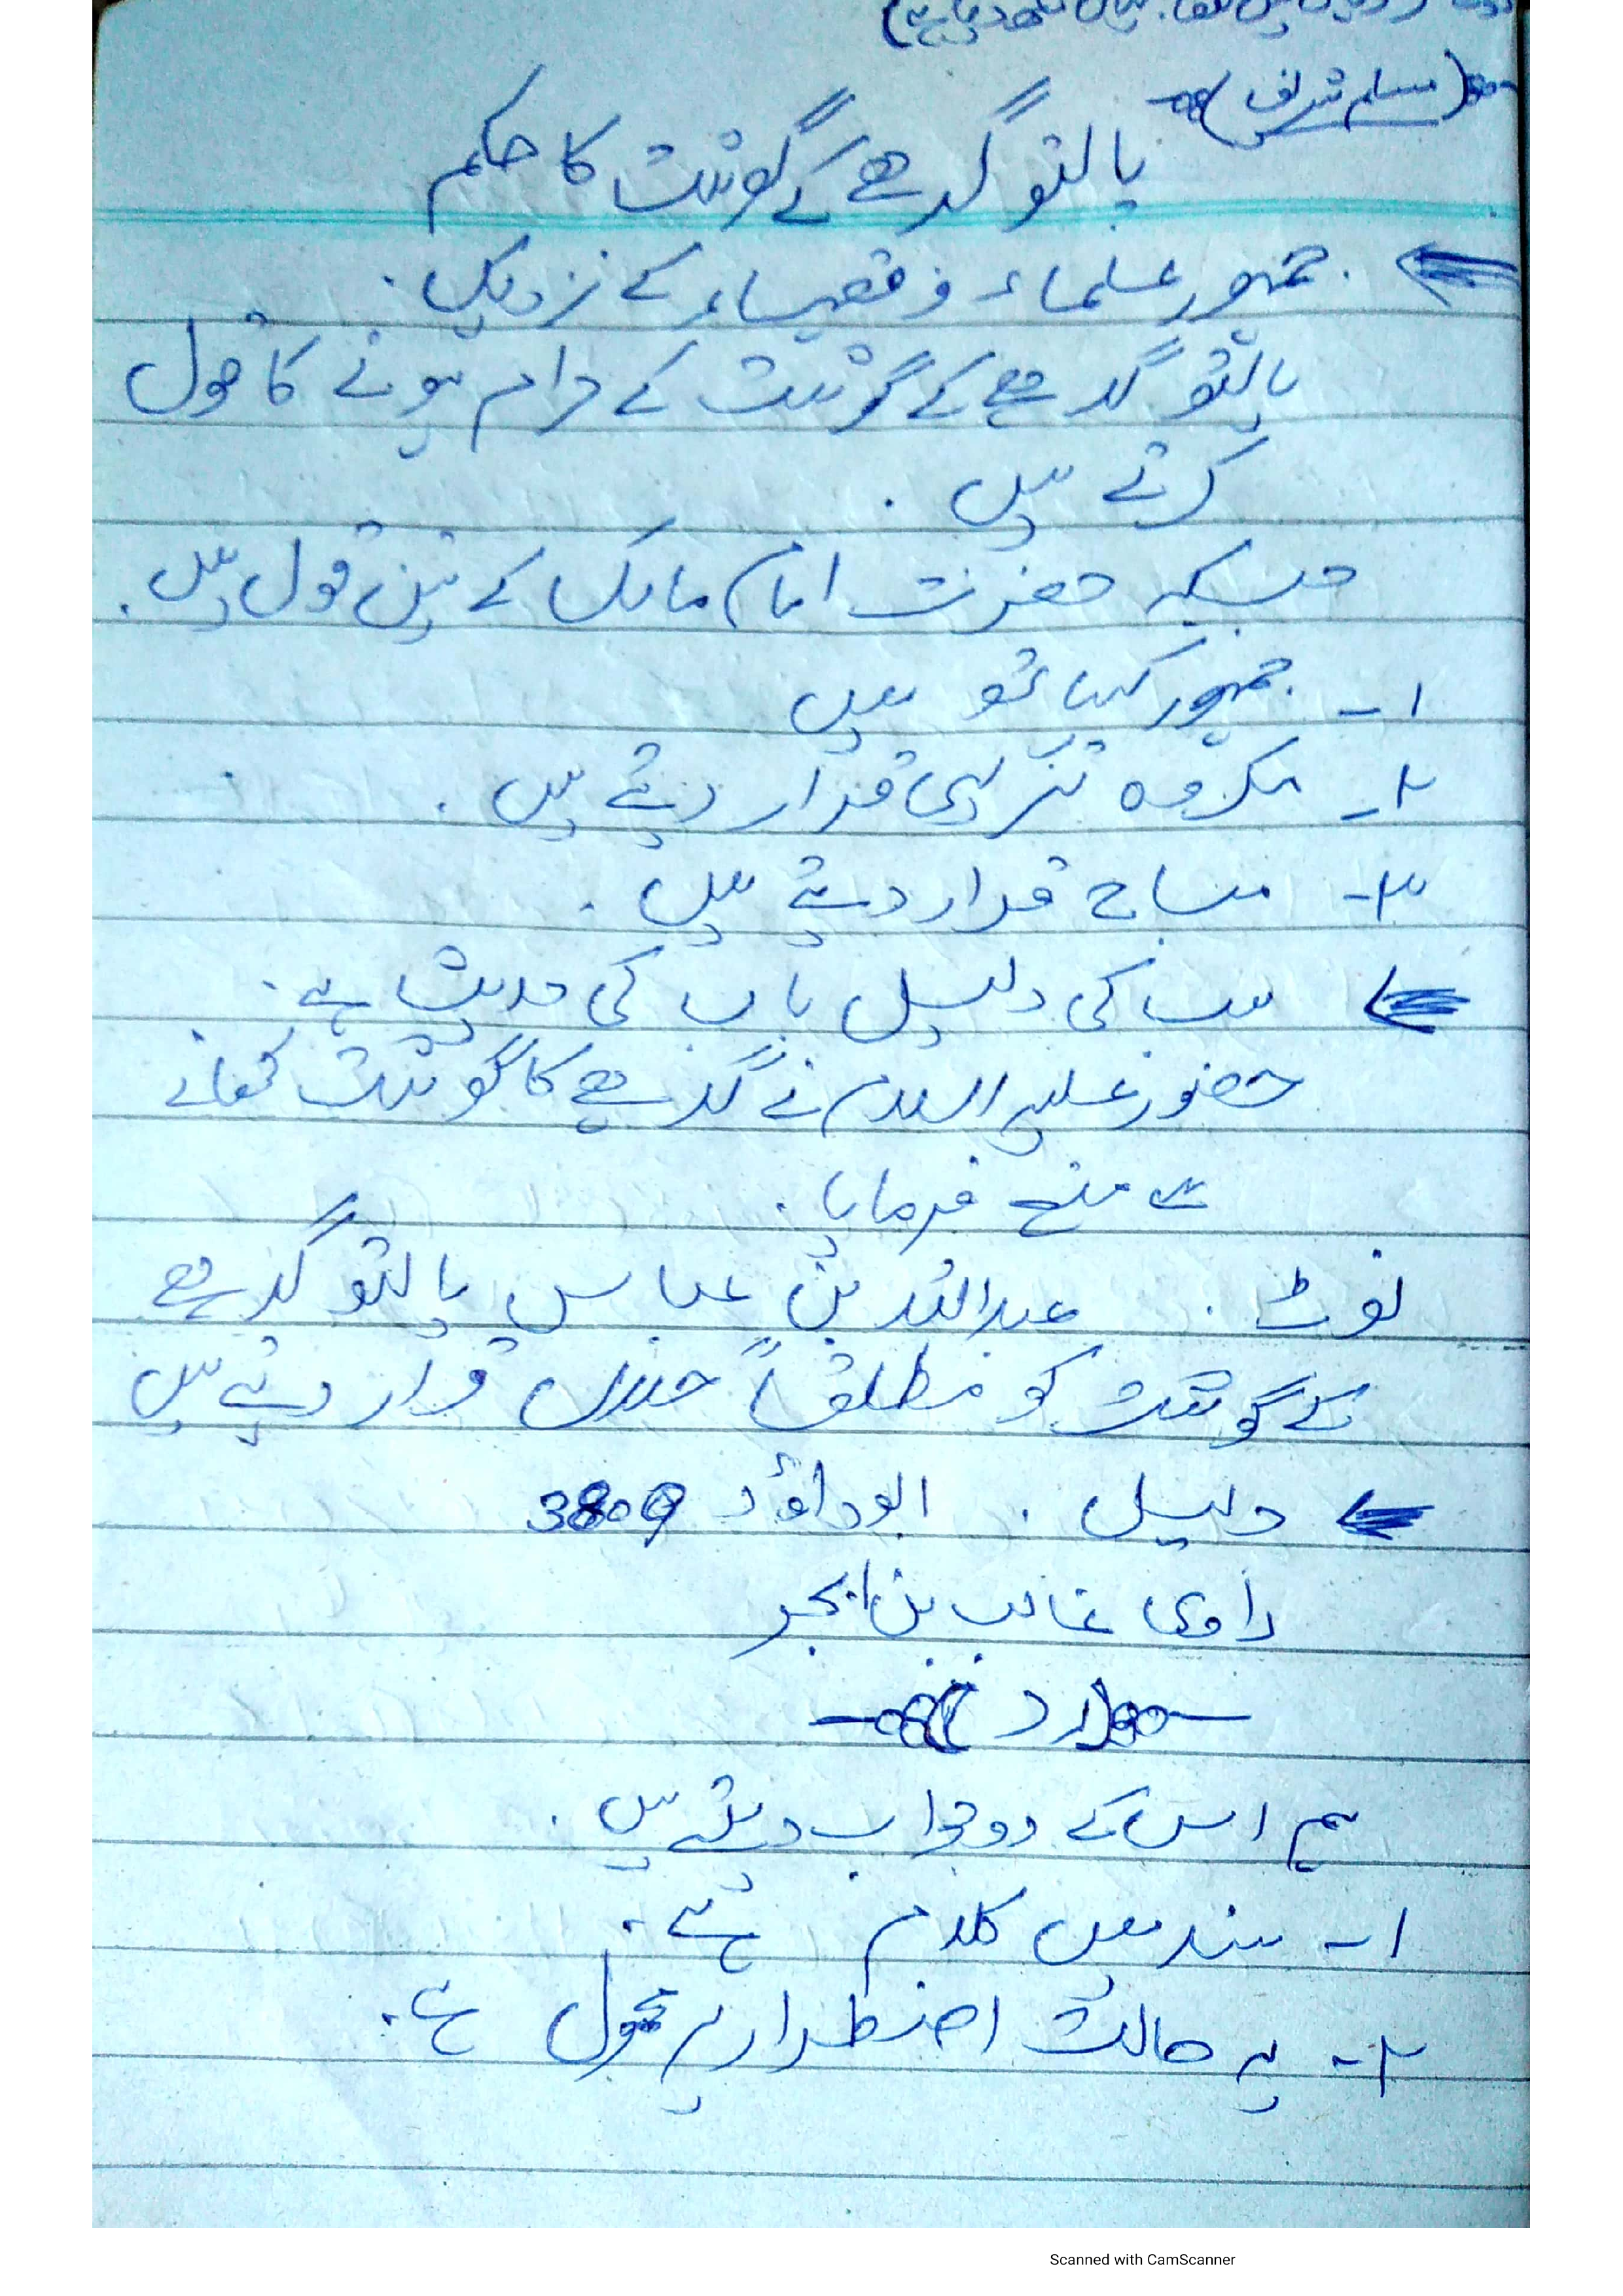 (مسلم شریف)
پالتو گدھے کے گوشت کا حکم
جمہور علماء و فقہاء کے نزدیک.
پالتو گدھے کے گوشت کے حرام ہونے کا قول
کرتے ہیں.
جبکہ حضرت امام مالک کے تین قول ہیں.
۱۔ جمہور کیساتھ ہیں
۲۔ مکروہ تنزیہی قرار دیتے ہیں.
۳۔ مباح قرار دیتے ہیں.
سب کی دلیل باب کی حدیث ہے.
حضور علیہ السلام نے گدھے کا گوشت کھانے
سے منع فرمایا.
نوٹ. عبداللہ بن عباس پالتو گدھے
کے گوشت کو مطلقاً حلال قرار دیتے ہیں
دلیل. ابوداؤد 3809
راوی غالب بن ابجر
(رد)
ہم اس کے دو جواب دیتے ہیں.
۱۔ سند میں کلام ہے.
۲۔ یہ حالت اضطرار پر محمول ہے.
Scanned with CamScanner